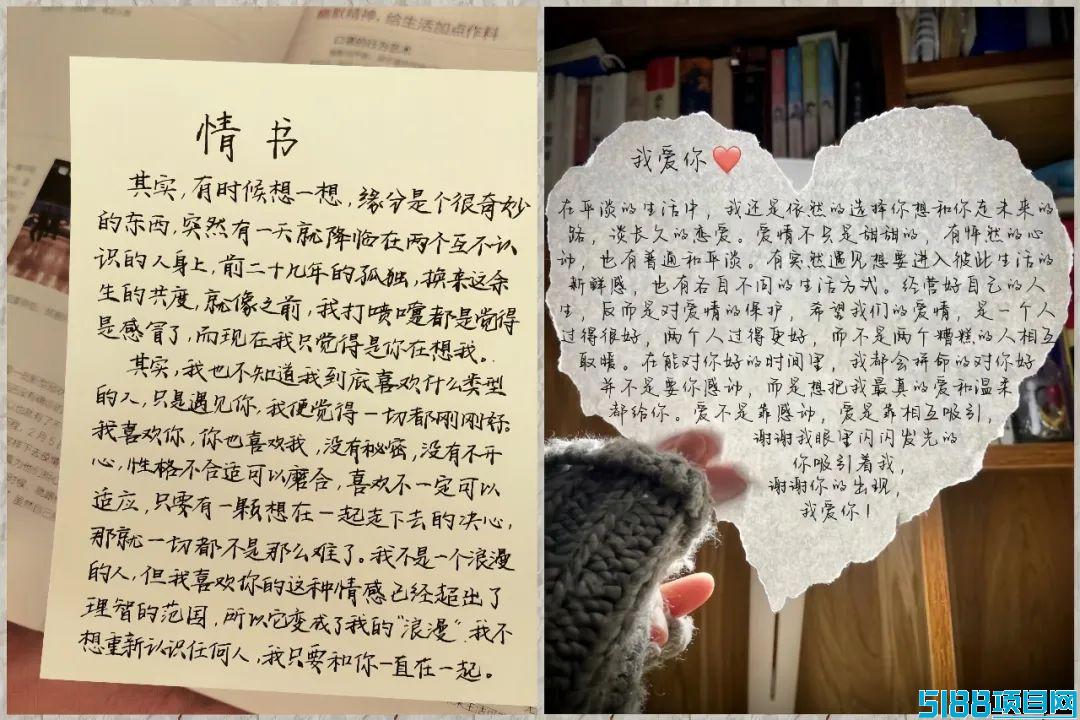 幽默精神，给生活加点作料
情书
其实，有时候想一想，缘分是个很奇妙
的东西，突然有一天就降临在两个互不认
识的人身上，前二十九年的孤独，换来这余
生的共度，就像之前，我打喷嚏都是觉得
是感冒了，而现在我只觉得是你在想我。
其实，我也不知道我到底喜欢什么类型
的人，只是遇见你，我便觉得一切都刚刚好。
我喜欢你，你也喜欢我，没有秘密，没有不开
心，性格不合适可以磨合，喜欢不一定可以
适应，只要有一颗想在一起走下去的决心，
那就一切都不是那么难了。我不是一个浪漫
的人，但我喜欢你的这种情感已经超出了
理智的范围，所以它变成了我的“浪漫”，我不
想重新认识任何人，我只要和你一直在一起。
我爱你❤️
在平淡的生活中，我还是依然的选择你想和你走未来的
路，谈长久的恋爱。爱情不只是甜甜的，有怦然的心
动，也有普通和平淡。有突然遇见想要进入彼此生活的
新鲜感，也有各自不同的生活方式。经营好自己的人
生，反而是对爱情的保护，希望我们的爱情，是一个人
过得很好，两个人过得更好，而不是两个糟糕的人相互
取暖。在能对你好的时间里，我都会拼命的对你好
并不是要你感动，而是想把我最真的爱和温柔
都给你。爱不是靠感动，爱是靠相互吸引，
谢谢我眼里闪闪发光的
你吸引着我，
谢谢你的出现，
我爱你！
5188项目网